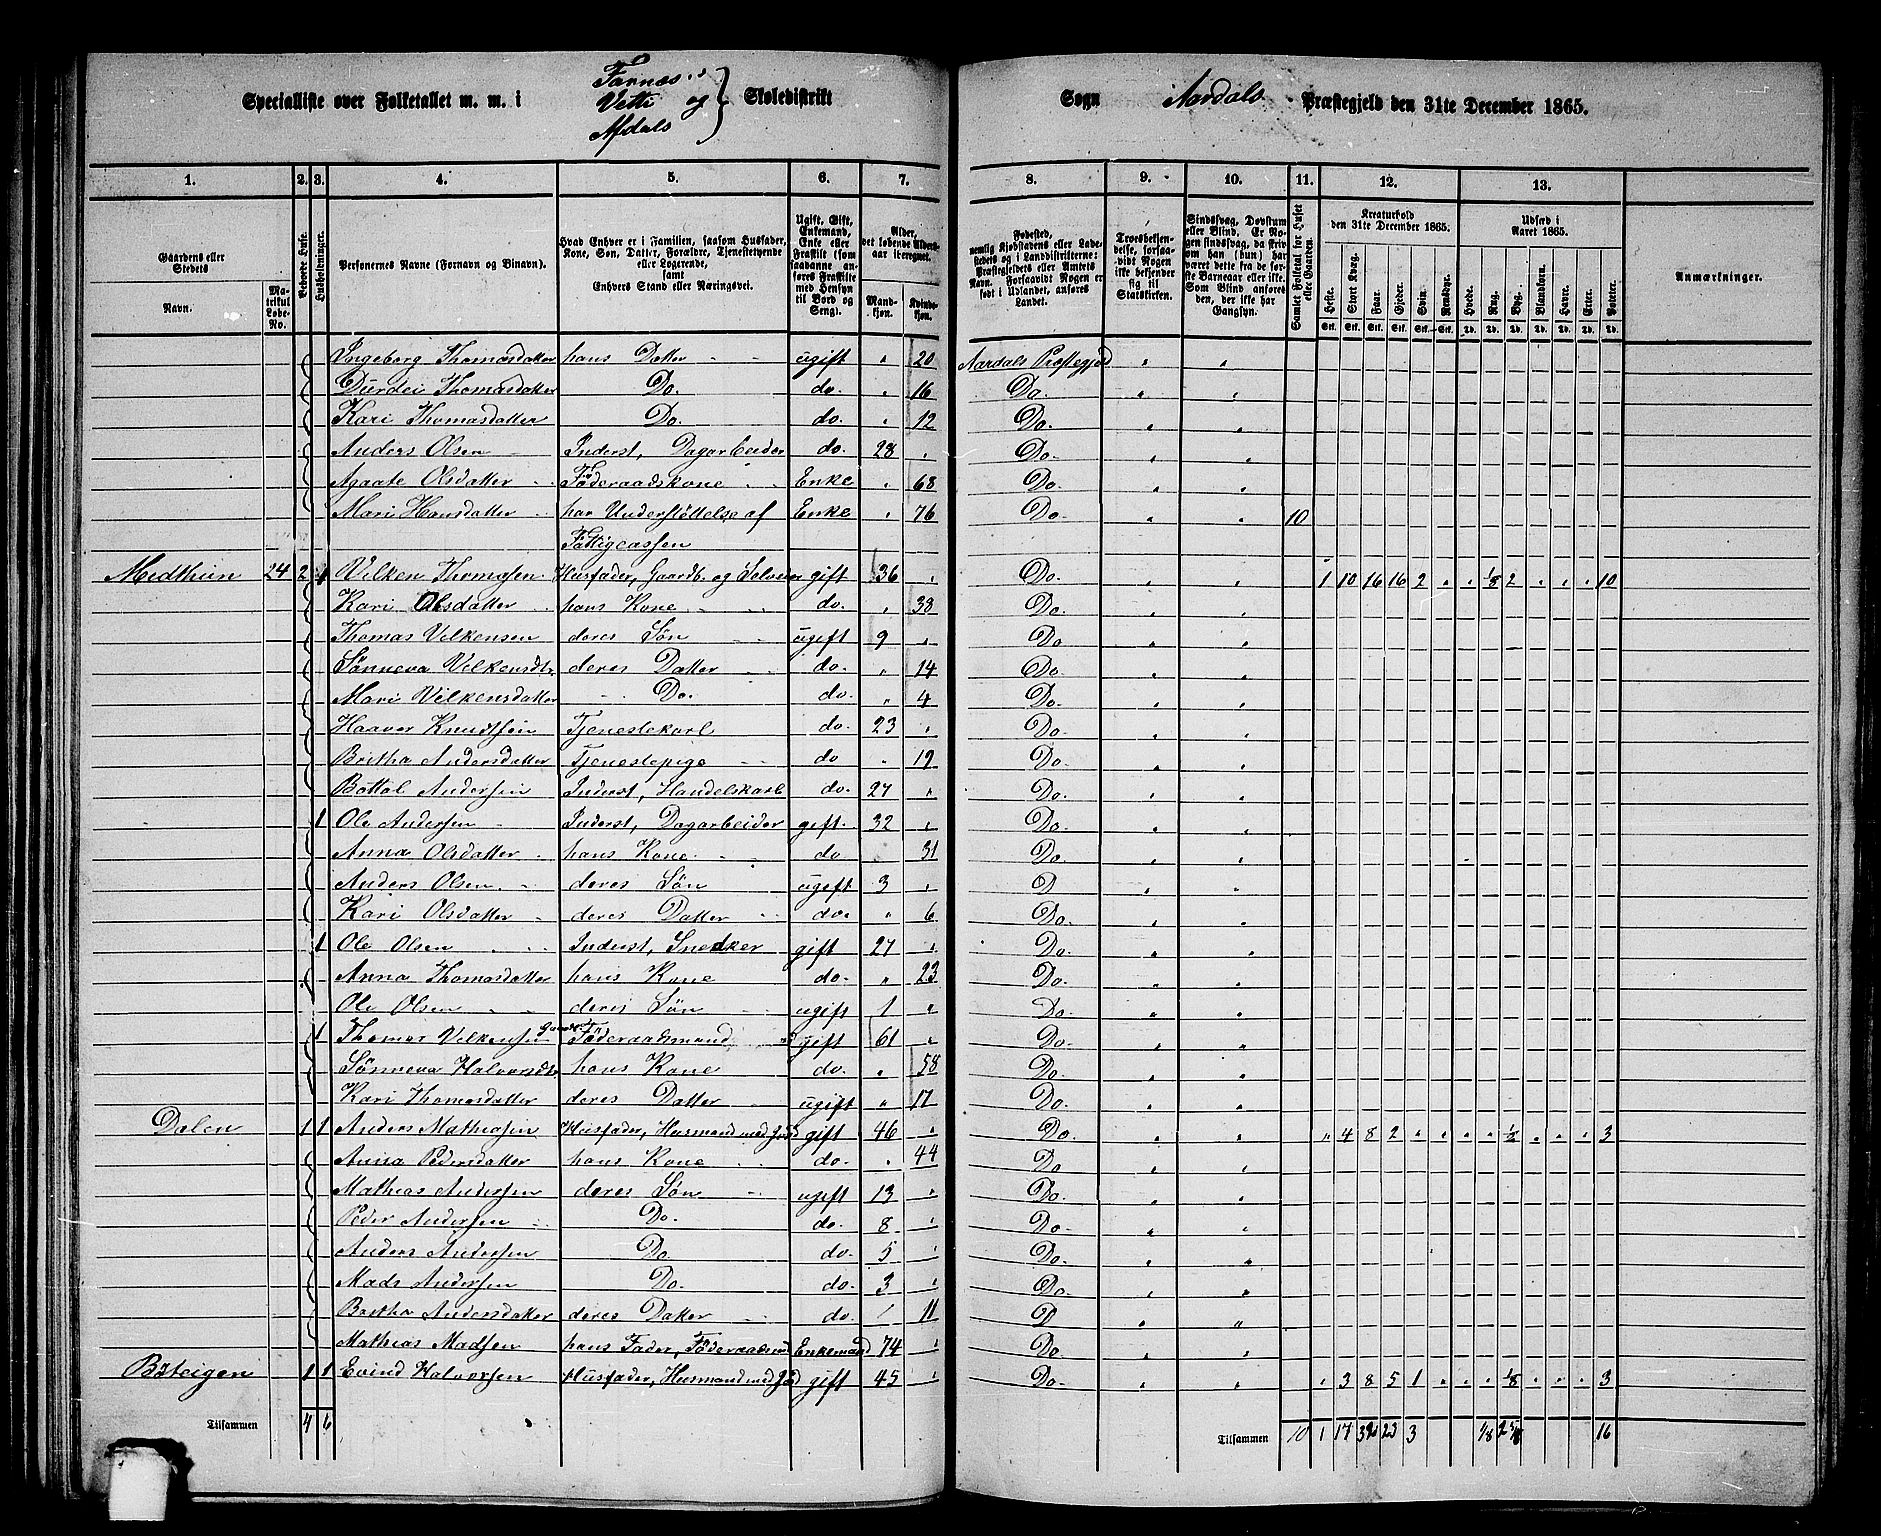 Specialliste over Folketallet m. m. i Farnæs Vetti og Afdals Skoledistrikt Sogn Aardals Præstegjeld den 31te December 1865.
1. 2. 3. 4. 5. 6. 7. 8. 9. 10. 11. 12. 13.
Gaardens eller Stedets Navn. Matrikul Løbe-No. Beboede Huse. Husholdninger. Personernes Navne (Fornavn og Binavn).
Hvad Enhver er i Familien, saasom Husfader, Kone, Søn, Datter, Forældre, Tjenestetyende eller Logerende, samt Enhvers Stand eller Næringsvei.
Ugift, Gift, Enkemand, Enke eller Fraskilt (som saadanne anføres Fraskilte med Hensyn til Bord og Seng).
Alder, det løbende Aldersaar iberegnet. Mandkjøn. Kvindekjøn.
Fødested, nemlig Kjøbstadens eller Ladestedets og i Landdistrikterne: Præstegjeldets eller Amtets Navn. Forsaavidt Nogen er født i Udlandet, anføres Landet.
Troesbekjendelse, forsaavidt Nogen ikke bekjender sig til Statskirken.
Sindssvag, Døvstum eller Blind. Er Nogen sindssvag, da skrives om han (hun) har været dette fra de første Barneaar eller ikke. Som Blind anføres den, der ikke har Gangsyn.
Samlet Folketal for Huset eller Gaarden.
Kreaturhold den 31te December 1865. Heste. Stort Kvæg. Faar. Gjeder. Svin. Rensdyr.
Udsæd i Aaret 1865. Hvede. Rug. Byg. Blandkorn. Havre. Erter. Poteter.
Anmærkninger.
Ingeborg Thomasdatter hans Datter ugift " 20 Aardals Præstegjeld " "
Durdei Thomasdatter Do. do. " 16 Do. " "
Kari Thomasdatter Do. do. " 12 Do. " "
Anders Olsen Inderst, Dagarbeider do. 28 " Do. " "
Agaate Olsdatter Föderaadskone Enke " 68 Do. " "
Mari Hansdatter har Understøttelse af Enke " 76 Do. " " 10
Fattigcassen
Medthun 24 2 1 Vilken Thomasen Husfader, Gaardb. og Selveier gift 36 " Do. " " 1 10 16 16 2 " " 1/8 2 " " " 10
Kari Olsdatter hans Kone do. " 38 Do. " "
Thomas Velkensen deres Søn ugift 9 " Do " "
Sønneva Velkensdtr. deres Datter do. " 14 Do. " "
Mari Vilkensdatter Do. do. " 4 Do. " "
Haavor Knudtsen Tjenestekarl do. 23 " Do. " "
Britha Andersdatter Tjenestepige do " 19 Do. " "
Bottol Andersen Inderst, Handelskarl do. 27 " Do. " "
1 Ole Andersen Inderst, Dagarbeider gift 32 " Do. " "
Anna Olsdatter hans Kone do. 31 Do. " "
Anders Olsen deres Søn ugift 3 " D " "
Kari Olsdatter deres Datter do. " 6 Do. " "
1 Ole Olsen Inderst, Snedker gift 27 " Do " "
Anna Thomasdatter hans Kone do. " 23 Do. " "
Ole Olsen deres Søn ugift 1 " Do. " "
1 Thomas Velkensen Föderaadsmand gift 61 " Do. " "
Sønneva Halvorsdtr hans Kone do. " 58 Do. " "
Kari Thomasdatter deres Datter ugift " 17 Do. " "
Dalen 1 1 Anders Mathiasen Husfader, Husmand med Jord gift 46 " Do. " " " 4 8 2 " " " " 1/2 " " " 3
Anna Pedersdatter hans Kone do. " 44 Do. " "
Mathias Andersen deres Søn ugift 13 " Do. " "
Peder Andersen Do. do. 8 " Do. " "
Anders Andersen Do. do. 5 " Do. " "
Mads Andersen Do. do. 3 " Do. " "
Britha Andersdatter deres Datter do. " 11 D " "
Mathias Madsen hans Fader, Föderaadsmd Enkemand 74 " Do. " "
Bøteigen 1 1 Evind Halvorsen Husfader, Husmand med Jord gift 45 " Do. " " " 3 8 5 1 " " " 1/8 " " " 3
Tilsammen 4 6 Tilsammen 10 1 17 32 23 3 1/8 2 5/8 16